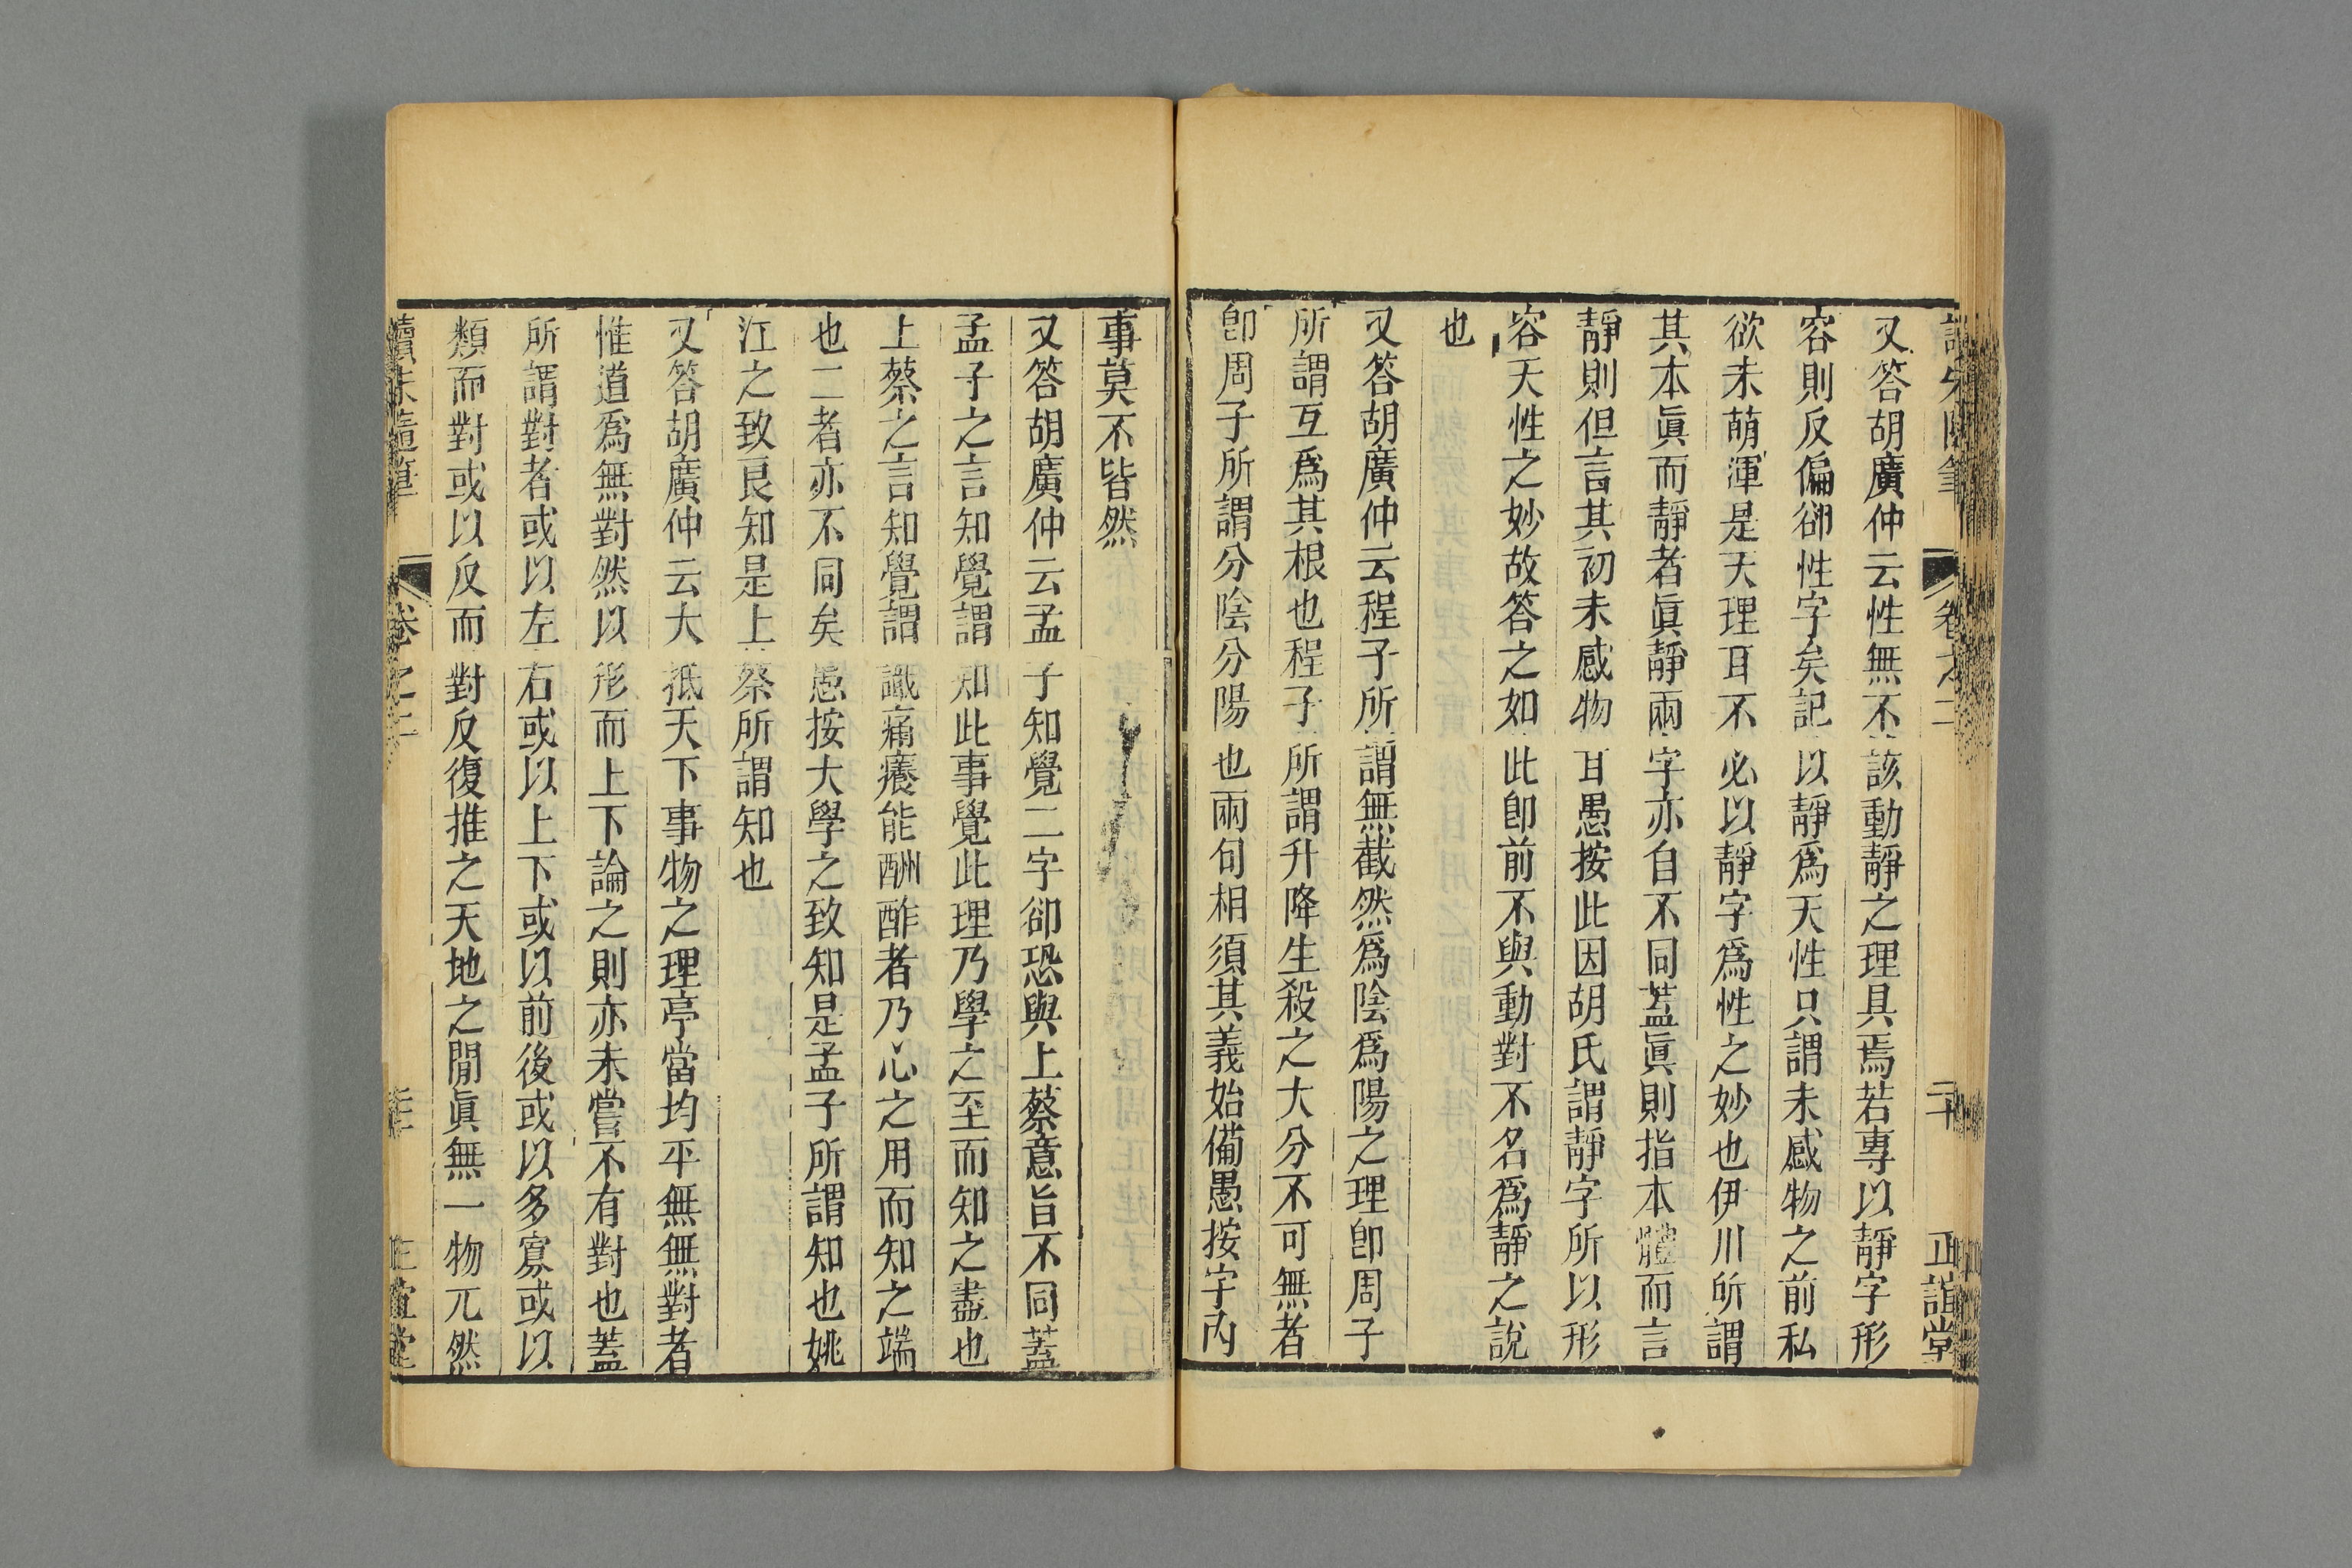 卷之二 二十 正誼堂
又答胡廣仲云性無不該動靜之理具焉若專以靜字形
容則反偏卻性字矣記以靜爲天性只謂未感物之前私
欲未萌渾是天理耳不必以靜字爲性之妙也伊川所謂
其本眞而靜者眞靜兩字亦自不同蓋眞則指本體而言
靜則但言其初未感物耳愚按此因胡氏謂靜字所以形
容天性之妙故答之如此卽前不與動對不名爲靜之說
也
又答胡廣仲云程子所謂無截然爲陰爲陽之理卽周子
所謂互爲其根也程子所謂升降生殺之大分不可無者
卽周子所謂分陰分陽也兩句相須其義始備愚按字內
事莫不皆然
又答胡廣仲云孟子知覺二字卻恐與上蔡意旨不同蓋
孟子之言知覺謂知此事覺此理乃學之至而知之盡也
上蔡之言知覺謂識痛癢能酬酢者乃心之用而知之端
也二者亦不同矣愚按大學之致知是孟子所謂知也姚
江之致良知是上蔡所謂知也
又答胡廣仲云大抵天下事物之理亭當均平無無對者
惟道爲無對然以形而上下論之則亦未嘗不有對也蓋
所謂對者或以左右或以上下或以前後或以多寡或以
類而對或以反而對反復推之天地之閒眞無一物兀然
讀朱隨筆 卷之二